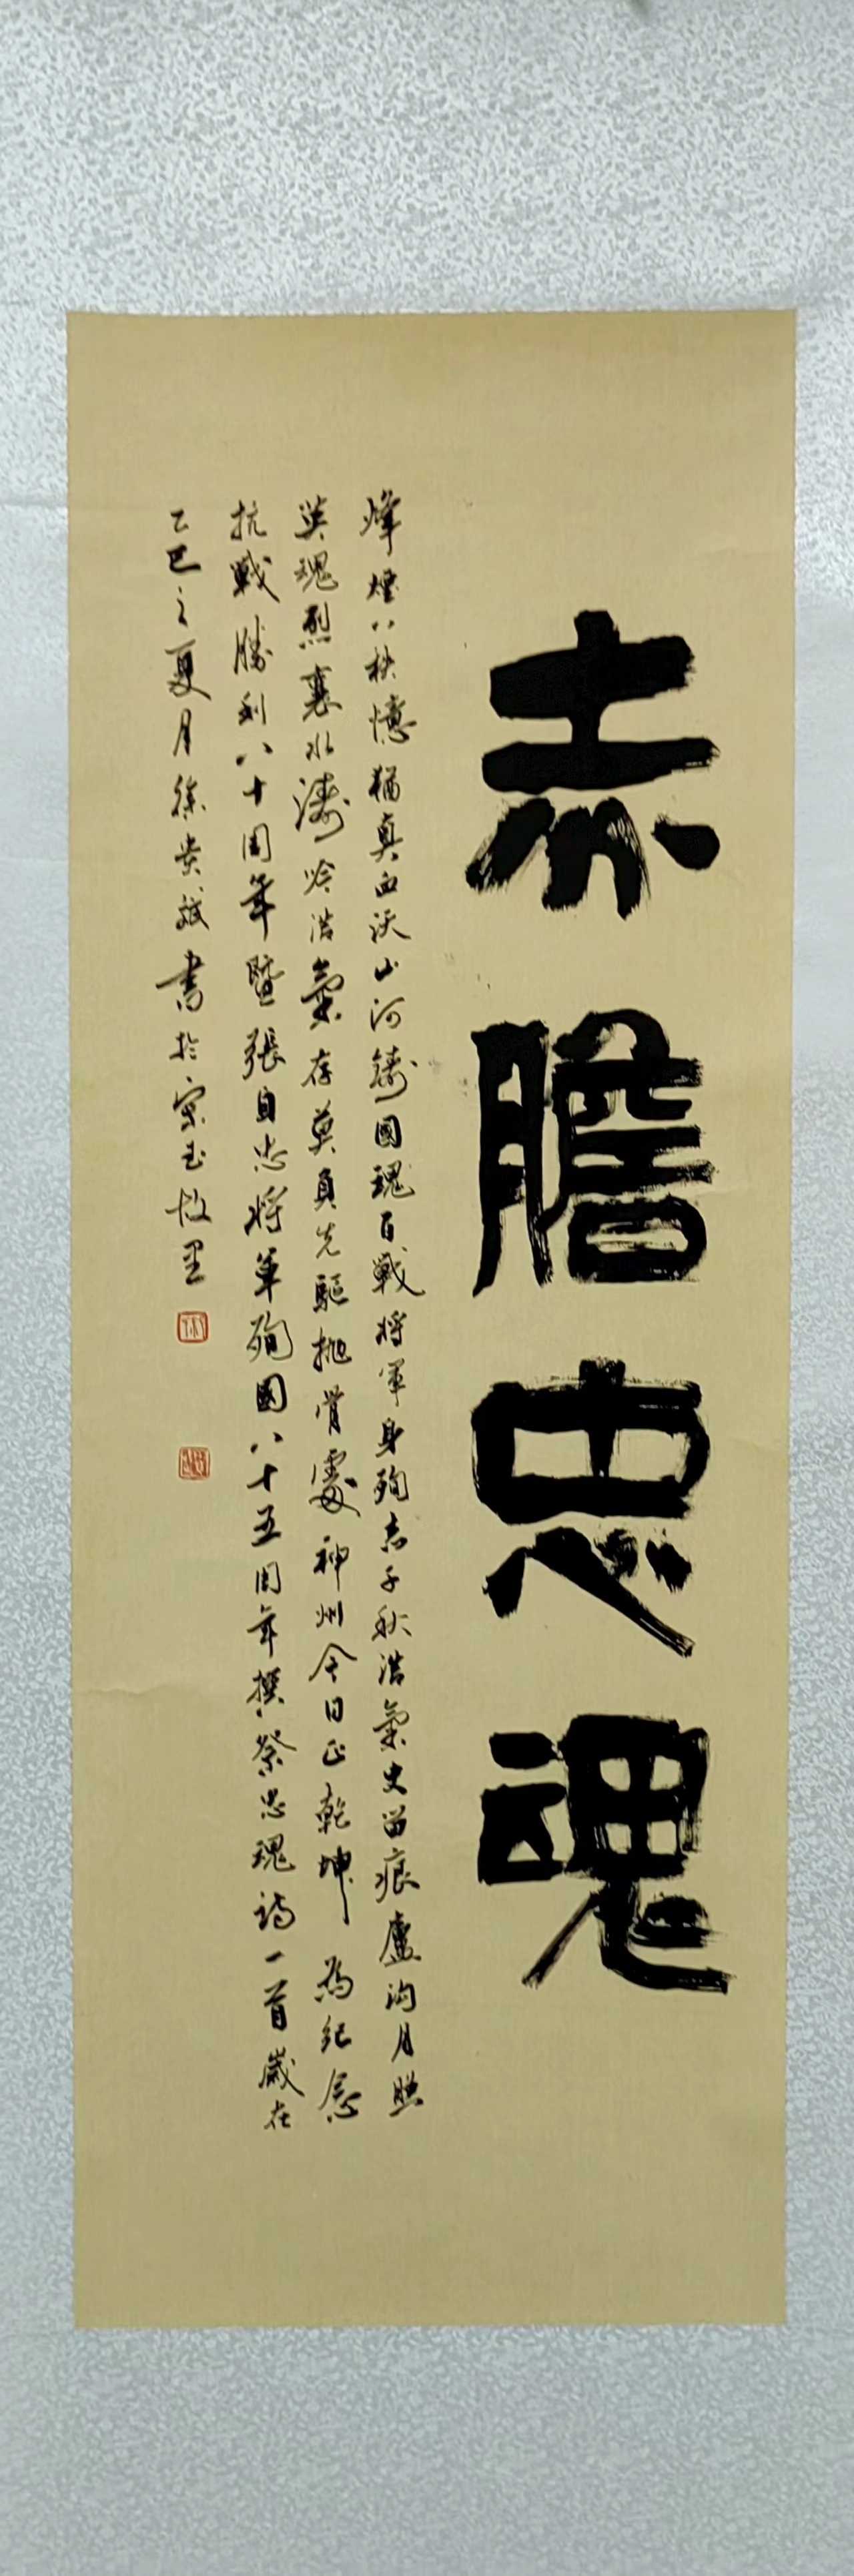 赤膽忠魂
烽煙八秩憶猶真血沃山河鑄國魂百戰將軍身殉志千秋浩氣史留痕盧溝月照
英魂烈襄水濤冷浩氣存莫負先驅拋骨處神州今日正乾坤 為紀念
抗戰勝利八十周年暨張自忠將軍殉國八十五周年撰祭忠魂詩一首歲在
乙巳之夏月徐貴斌書於宋玉故里